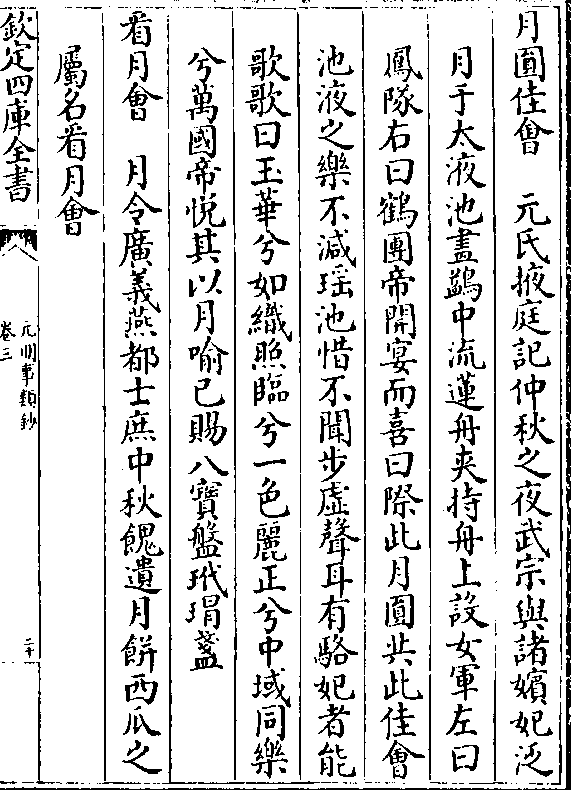 月圓佳會　元氏掖庭記仲秋之夜武宗與諸嬪妃泛
月于太液池畫鷁中流蓮舟夾持舟上設女軍左曰
鳳隊右曰鶴團帝開宴而喜曰際此月圓共此佳會
池液之樂不減瑶池惜不聞步虚聲耳有駱妃者能
歌歌曰玉華兮如織照臨兮一色麗正兮中域同樂
兮萬國帝悦其以月喻已賜八寶盤玳瑁盞
看月會　月令廣義燕都士庶中秋餽遺月餅西瓜之
屬名看月會
欽定四庫全書
元明事類鈔
卷三
二十